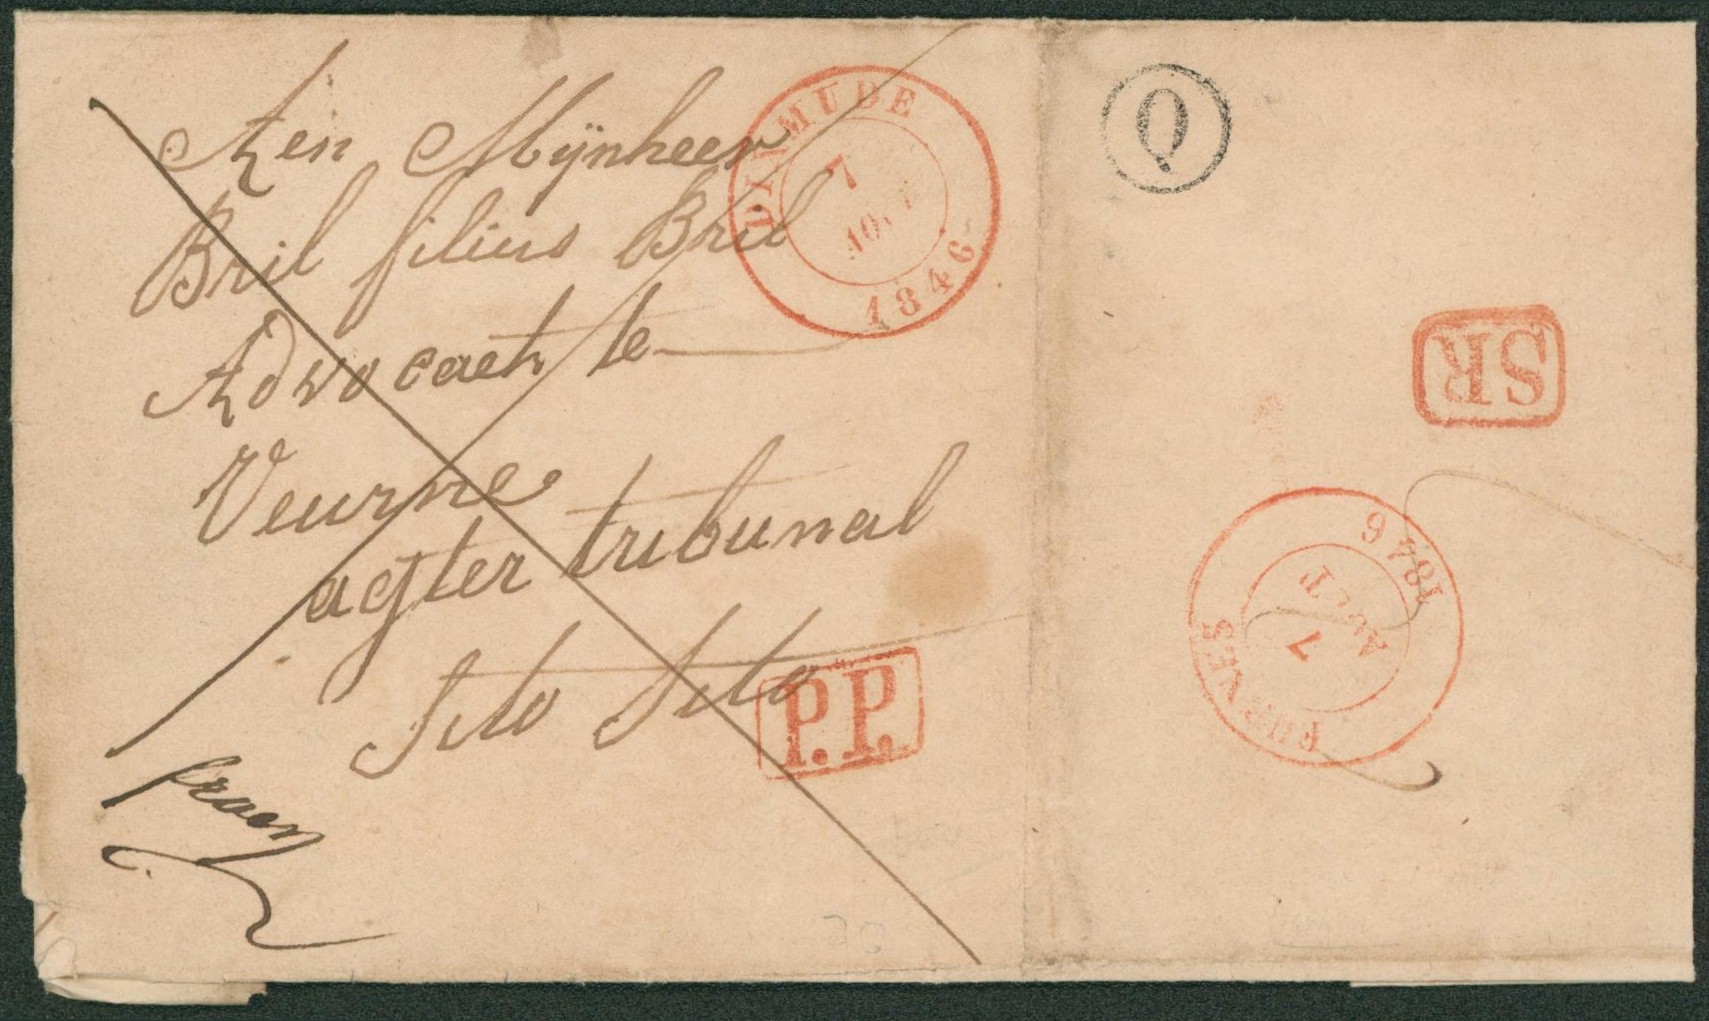 Aen Mijnheer
Bril filius Bril
Advocaet te
Veurne
agter tribunal
Sito Sito
franco
DIXMUDE
7
AOUT
1846
P.P.
Q
SR
FURNES
7
AOUT
1846